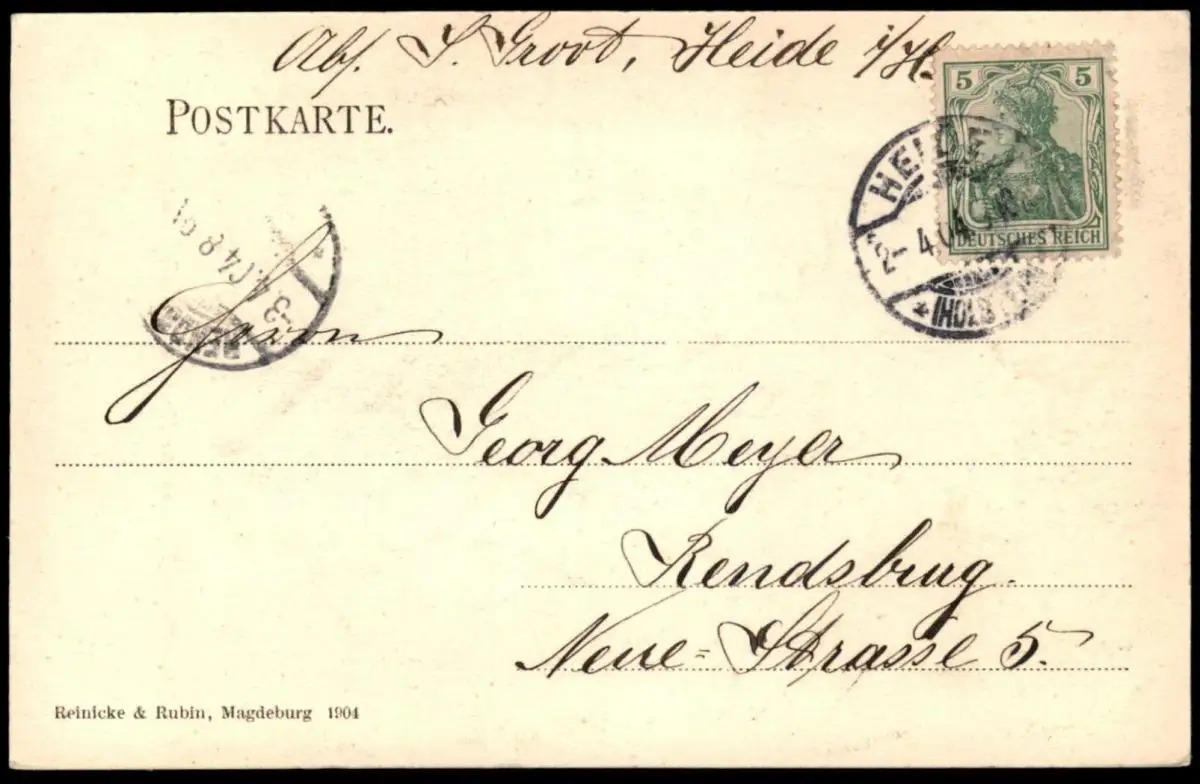 Abs. J. Groot, Heide i/H.
POSTKARTE.
5 5
DEUTSCHES REICH
HEIDE
2- 4.04
* (HOLST
-3.4.04 8
Herrn
Georg Meyer
Rendsbrug.
Neue=Strasse 5.
Reinicke & Rubin, Magdeburg 1904